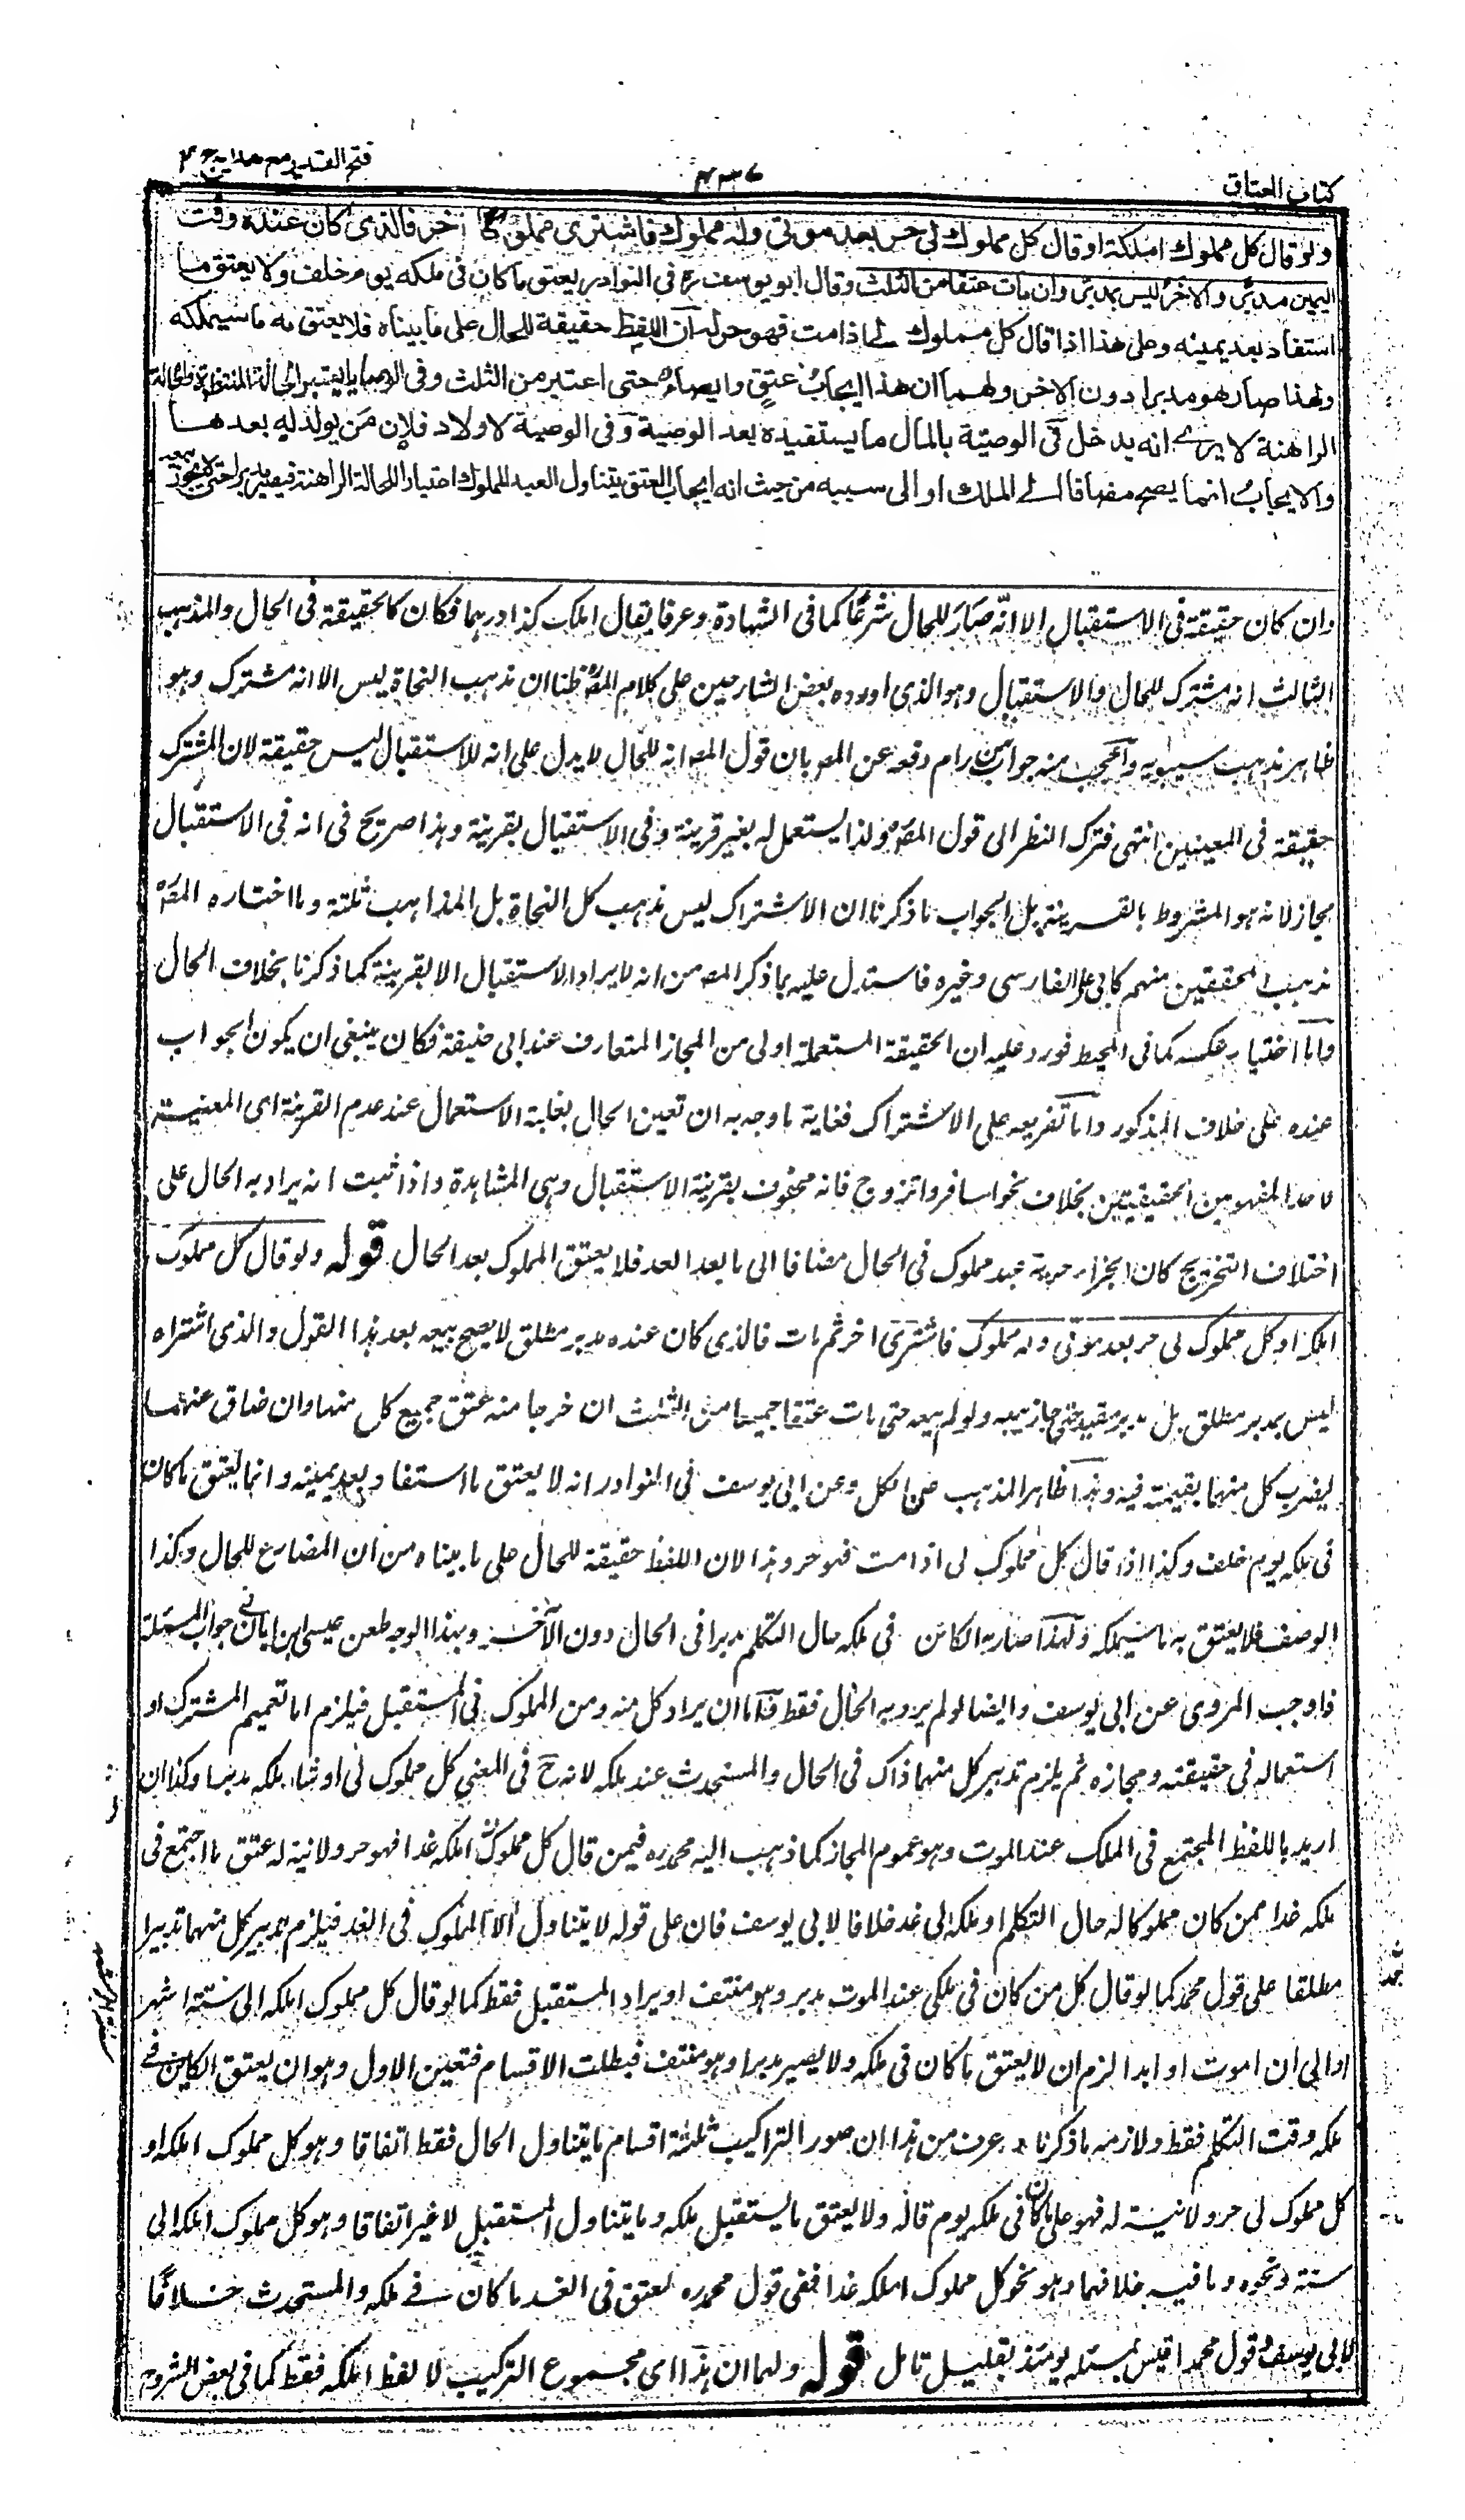 كتاب العتاق
٤٣٦
فتح القدير مع هدايه ج ٤
ولو قال كل مملوك املكه او قال كل مملوك لى حر بعد موتى وله مملوك فاشترى مملوكا اخر فالذى كان عنده وقت
اليمين مدبر والاخر ليس بمدبر وان مات عتقا من الثلث وقال ابو يوسف رح فى النوادر يعتق ما كان فى ملكه يوم حلف ولا يعتق ما
استفاد بعد يمينه وعلى هذا اذا قال كل مملوك لى اذا مت فهو حر له ان اللفظ حقيقة للحال على ما بيناه فلا يعتق به ما سيملكه
ولهذا صار هو مدبرا دون الاخر ولهما ان هذا ايجاب عتق وايصاء حتى اعتبر من الثلث وفى الوصايا يعتبر الحالة المنتظرة والحالة
الراهنة لا يرى انه يدخل فى الوصية بالمال ما يستفيده بعد الوصية وفى الوصية لاولاد فلان من يولد له بعدها
والايجاب انما يصح مضافا الى الملك او الى سببه من حيث انه ايجاب العتق يتناول العبد المملوك اعتبارا للحالة الراهنة فيصير مدبرا حتى لا يجوز بيعه
وان كان حقيقة فى الاستقبال الا انه صار للحال شرعا كما فى الشهادة وعرفا يقال املك كذا درهما فكان كالحقيقة فى الحال والمذهب
الثالث انه مشترك للحال والاستقبال وهو الذى اورده بعض الشارحين على كلام المصؒ ظنا ان مذهب النحاة ليس الا انه مشترك وهو
ظاهر مذهب سيبويه واعجب منه جواب من رام دفعه عن المص بان قول المص انه للحال لا يدل على انه للاستقبال ليس حقيقة لان المشترك
حقيقة فى المعنيين انتهى فترك النظر الى قول المصؒ ولذا يستعمل له بغير قرينة وفى الاستقبال بقرينة وهذا صريح فى انه فى الاستقبال
مجاز لانه هو المشروط بالقرينة بل الجواب ما ذكرنا ان الاشتراك ليس مذهب كل النحاة بل المذاهب ثلثة وما اختاره المصؒ
مذهب المحققين منهم كابى على الفارسى وغيره فاستدل عليه بما ذكر المص من انه لا يراد الاستقبال الا بقرينة كما ذكرنا بخلاف الحال
واما اختيار عكسه كما فى المحيط فورد عليه ان الحقيقة المستعملة اولى من المجاز المتعارف عند ابى حنيفة فكان ينبغى ان يكون الجواب
عنده على خلاف المذكور واما تفريعه على الاشتراك فغاية ما وجه به ان تعين الحال بغلبة الاستعمال عند عدم القرينة اى المعينة
لاحد المفهومين الحقيقيين بخلاف نحو اسافر واتزوج فانه محفوف بقرينة الاستقبال وهى المشاهدة واذا ثبت انه يراد به الحال على
اختلاف التخريج كان الجزاء حرية عبد مملوك فى الحال مضافا الى ما بعد الغد فلا يعتق المملوك بعد الحال قوله ولو قال كل مملوك
املكه او كل مملوك لى حر بعد موتى وله مملوك فاشترى اخر ثم مات فالذى كان عنده مدبر مطلق لا يصح بيعه بعد هذا القول والذى اشتراه
ليس بمدبر مطلق بل مدبر مقيد حتى جاز بيعه ولو لم يبعه حتى مات عتقا جميعا من الثلث ان خرجا منه عتق جميع كل منهما وان ضاق عنهما
يضرب كل منهما بقيمته فيه وهذا ظاهر المذهب عن الكل وعن ابى يوسف فى النوادر انه لا يعتق ما استفاد بعد يمينه وانما يعتق ما كان
فى ملكه يوم حلف وكذا اذا قال كل مملوك لى اذا مت فهو حر وهذا لان اللفظ حقيقة للحال على ما بيناه من ان المضارع للحال وكذا
الوصف فلا يعتق به ما سيملكه ولهذا صار به الكائن فى ملكه حال التكلم مدبرا فى الحال دون الآخر وبهذا الوجه طعن عيسى ابن ابان فى جواب المسئلة
فاوجب المروى عن ابى يوسف وايضا لو لم يرد به الحال فقط فاما ان يراد كل منه ومن المملوك فى المستقبل فيلزم اما تعميم المشترك او
استعماله فى حقيقته ومجازه ثم يلزم تدبير كل منهما ذاك فى الحال والمستحدث عند ملكه لانه ح فى المعنى كل مملوك لى او شاء ملكه مدبر وكذا ان
اريد باللفظ المجتمع فى الملك عند الموت وهو عموم المجاز كما ذهب اليه محمد ره فيمن قال كل مملوك املكه غدا فهو حر ولا نية له عتق ما اجتمع فى
ملكه غدا ممن كان مملوكا له حال التكلم او ملكه الى غد خلافا لابى يوسف فان على قوله لا يتناول الا المملوك فى الغد فيلزم تدبير كل منهما تدبيرا
مطلقا على قول محمد كما لو قال كل من كان فى ملكى عند الموت مدبر وهو منتف او يراد المستقبل فقط كما لو قال كل مملوك املكه الى ستة اشهر
او الى ان اموت او ابدا لزم ان لا يعتق ما كان فى ملكه ولا يصير مدبرا وهو منتف فبطلت الاقسام فتعين الاول وهو ان يعتق الكائن فى
ملكه وقت التكلم فقط ولازمه ما ذكرنا وعرف من هذا ان صور التراكيب ثلثة اقسام ما يتناول الحال فقط اتفاقا وهو كل مملوك املكه او
كل مملوك لى حر ولا نية له فهو على ما كان فى ملكه يوم قاله ولا يعتق ما يستقبل ملكه وما يتناول المستقبل لا غير اتفاقا وهو كل مملوك املكه الى
سنة ونحوه وما فيه خلافهما وهو نحو كل مملوك املكه غدا ففى قول محمد ره يعتق فى الغد ما كان فى ملكه والمستحدث خلافا
لابى يوسف وقول محمد اقيس بمسئلة يومئذ بقليل تامل قوله ولهما ان هذا اى مجموع التركيب لا لفظ املكه فقط كما فى بعض الشروح